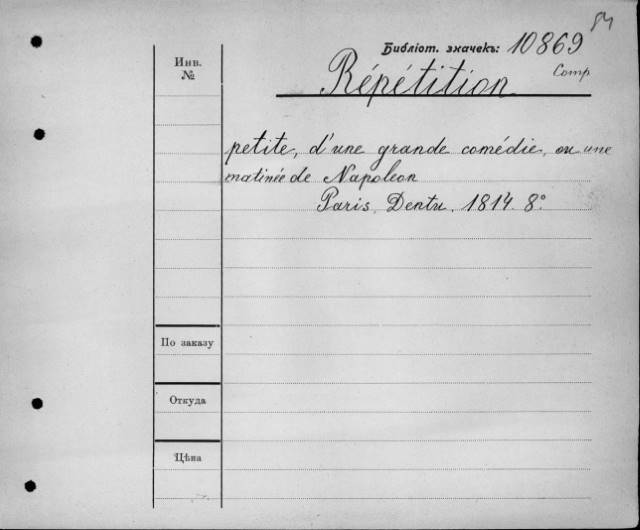 84
Библіот. значекъ: 10869
Comp
Répétition
Инв.
№
petite, d'une grande comédie, ou une
matinée de Napoleon
Paris, Dentu. 1814. 8°
По заказу
Откуда
Цѣна